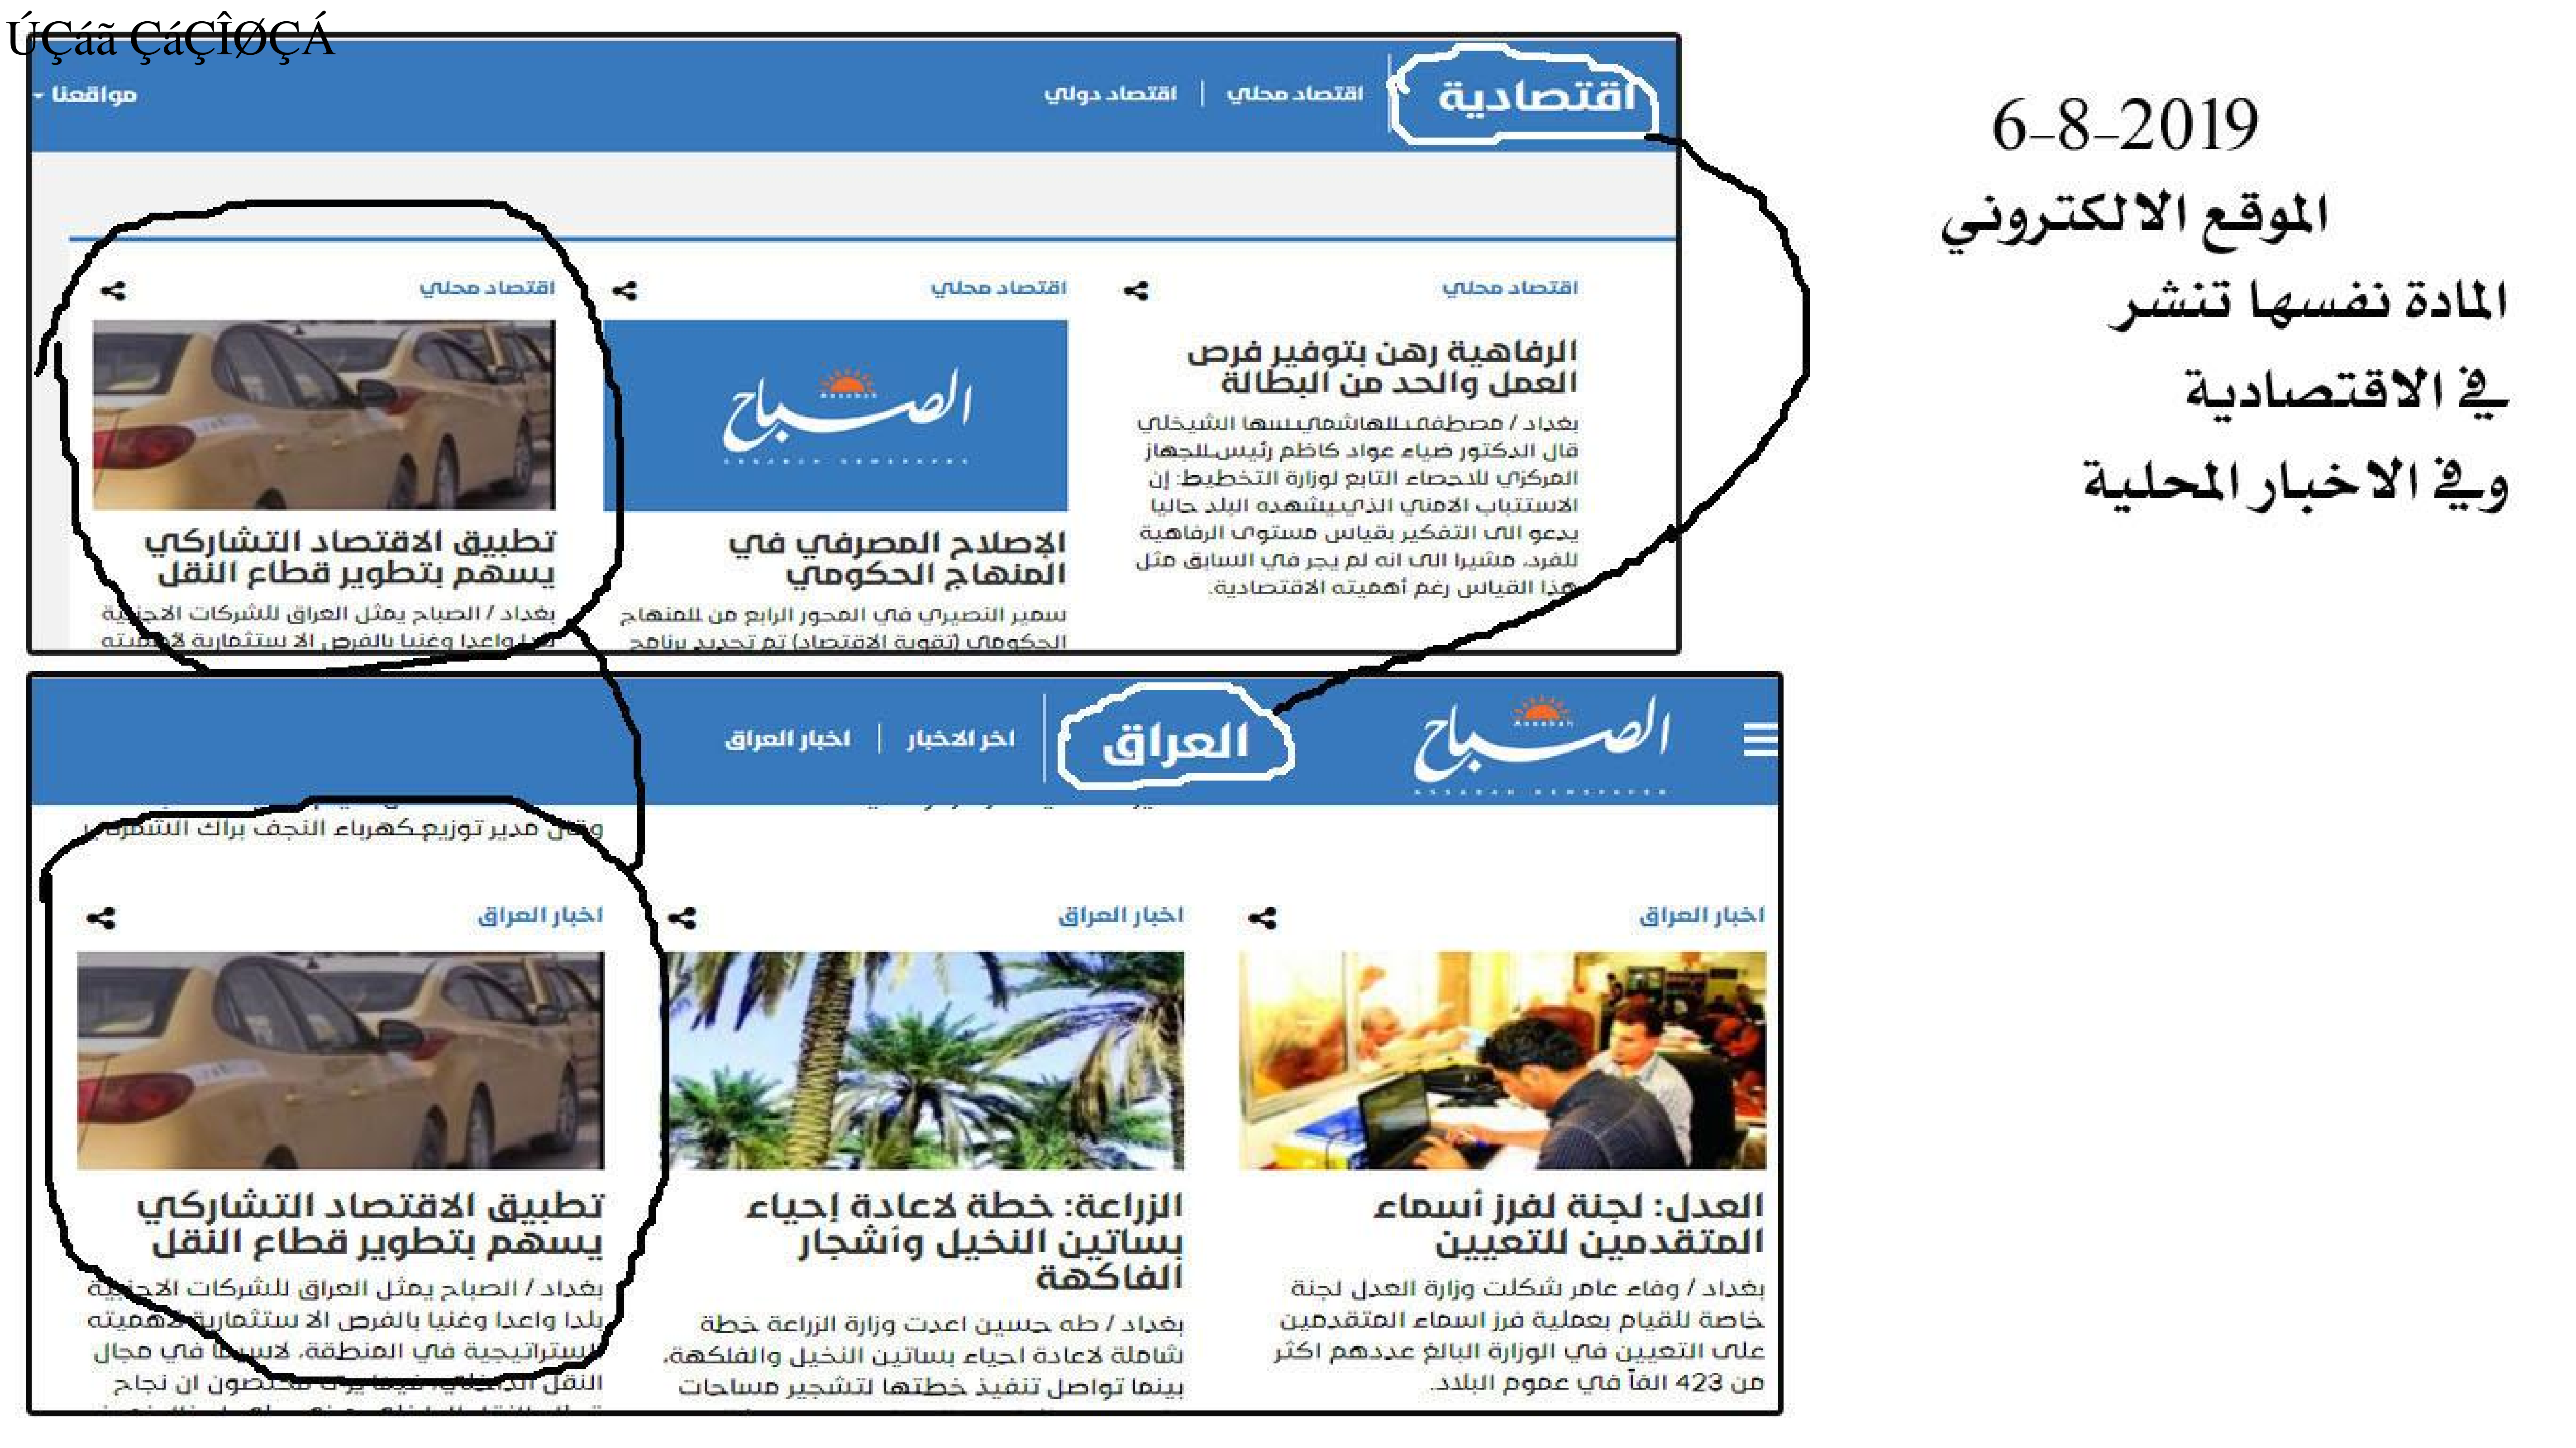 ÚÇáã ÇáÇÎØÇÁ
6-8-2019
الموقع الالكتروني
المادة نفسها تنشر
في الاقتصادية
وفي الاخبار المحلية
اقتصادية
اقتصاد محلي
اقتصاد دولي
مواقعنا
اقتصاد محلي
الرفاهية رهن بتوفير فرص
العمل والحد من البطالة
بغداد / مصطفى الهاشمي سها الشيخلي
قال الدكتور ضياء عواد كاظم رئيس الجهاز
المركزي للاحصاء التابع لوزارة التخطيط: إن
الاستتباب الامني الذي يشهده البلد حاليا
يدعو الى التفكير بقياس مستوى الرفاهية
للفرد، مشيرا الى انه لم يجر في السابق مثل
هذا القياس رغم أهميته الاقتصادية.
اقتصاد محلي
الصباح
Assabah
ASSABAH NEWSPAPER
الإصلاح المصرفي في
المنهاج الحكومي
سمير النصيري في المحور الرابع من المنهاج
الحكومي (تقوية الاقتصاد) تم تحديد برنامج
اقتصاد محلي
تطبيق الاقتصاد التشاركي
يسهم بتطوير قطاع النقل
بغداد / الصباح يمثل العراق للشركات الاجنبية
بلدا واعدا وغنيا بالفرص الا ستثمارية لأهميته
الصباح
Assabah
ASSABAH NEWSPAPER
العراق
اخر الاخبار
اخبار العراق
وقال مدير توزيع كهرباء النجف براك الشمرتي
اخبار العراق
العدل: لجنة لفرز أسماء
المتقدمين للتعيين
بغداد / وفاء عامر شكلت وزارة العدل لجنة
خاصة للقيام بعملية فرز اسماء المتقدمين
على التعيين في الوزارة البالغ عددهم اكثر
من 423 الفاً في عموم البلاد.
اخبار العراق
الزراعة: خطة لاعادة إحياء
بساتين النخيل وأشجار
الفاكهة
بغداد / طه حسين اعدت وزارة الزراعة خطة
شاملة لاعادة احياء بساتين النخيل والفاكهة،
بينما تواصل تنفيذ خطتها لتشجير مساحات
اخبار العراق
تطبيق الاقتصاد التشاركي
يسهم بتطوير قطاع النقل
بغداد / الصباح يمثل العراق للشركات الاجنبية
بلدا واعدا وغنيا بالفرص الا ستثمارية لأهميته
الستراتيجية في المنطقة، لاسيما في مجال
النقل الداخلي، فيما يرى مختصون ان نجاح